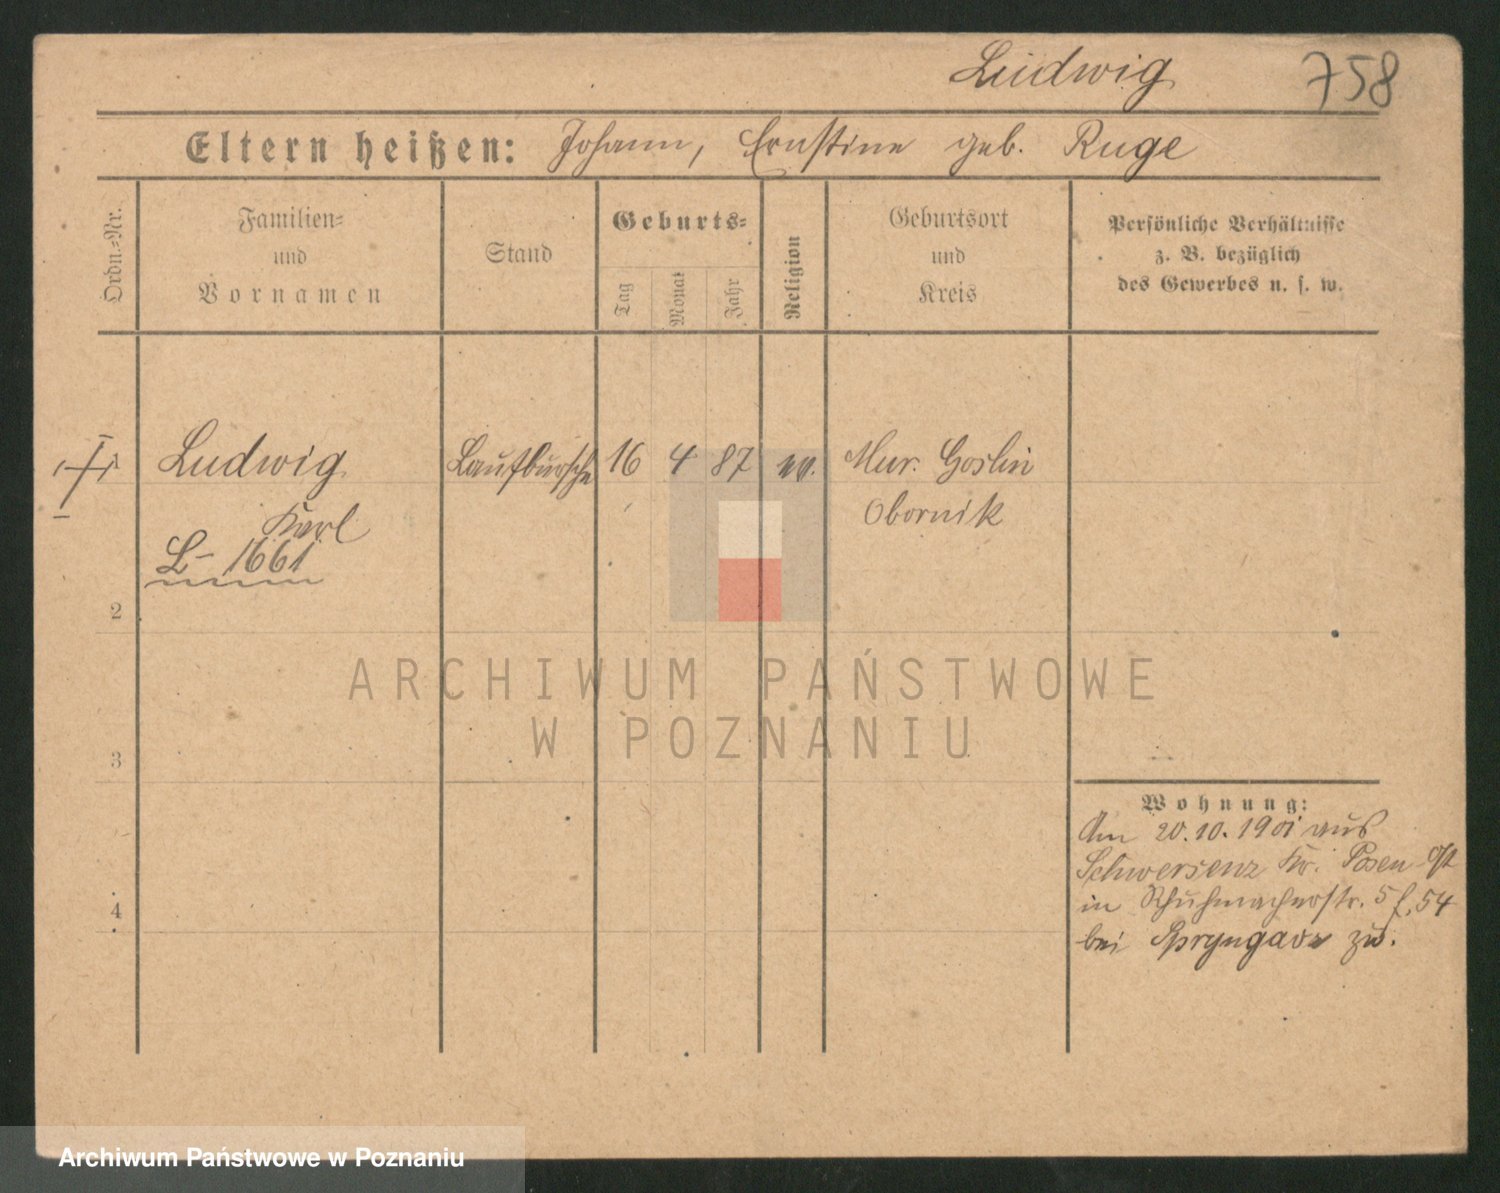 Ludwig 758
Eltern heißen: Johann, Ernstine geb. Ruge
Ordn.-Nr.
Familien-
und
Vornamen
Stand
Geburts-
Tag
Monat
Jahr
Religion
Geburtsort
und
Kreis
Persönliche Verhältnisse
z. B. bezüglich
des Gewerbes u. s. w.
Ludwig Laufbursche 16 4 87 ev. Mur. Goslin
Karl Obornik
L- 1661
2
3
4
ARCHIWUM PAŃSTWOWE
W POZNANIU
Wohnung:
Am 20.10.1901 aus
Schwersenz Kr. Posen Ost
in Schuhmacherstr. 5
bei zu.
Archiwum Państwowe w Poznaniu